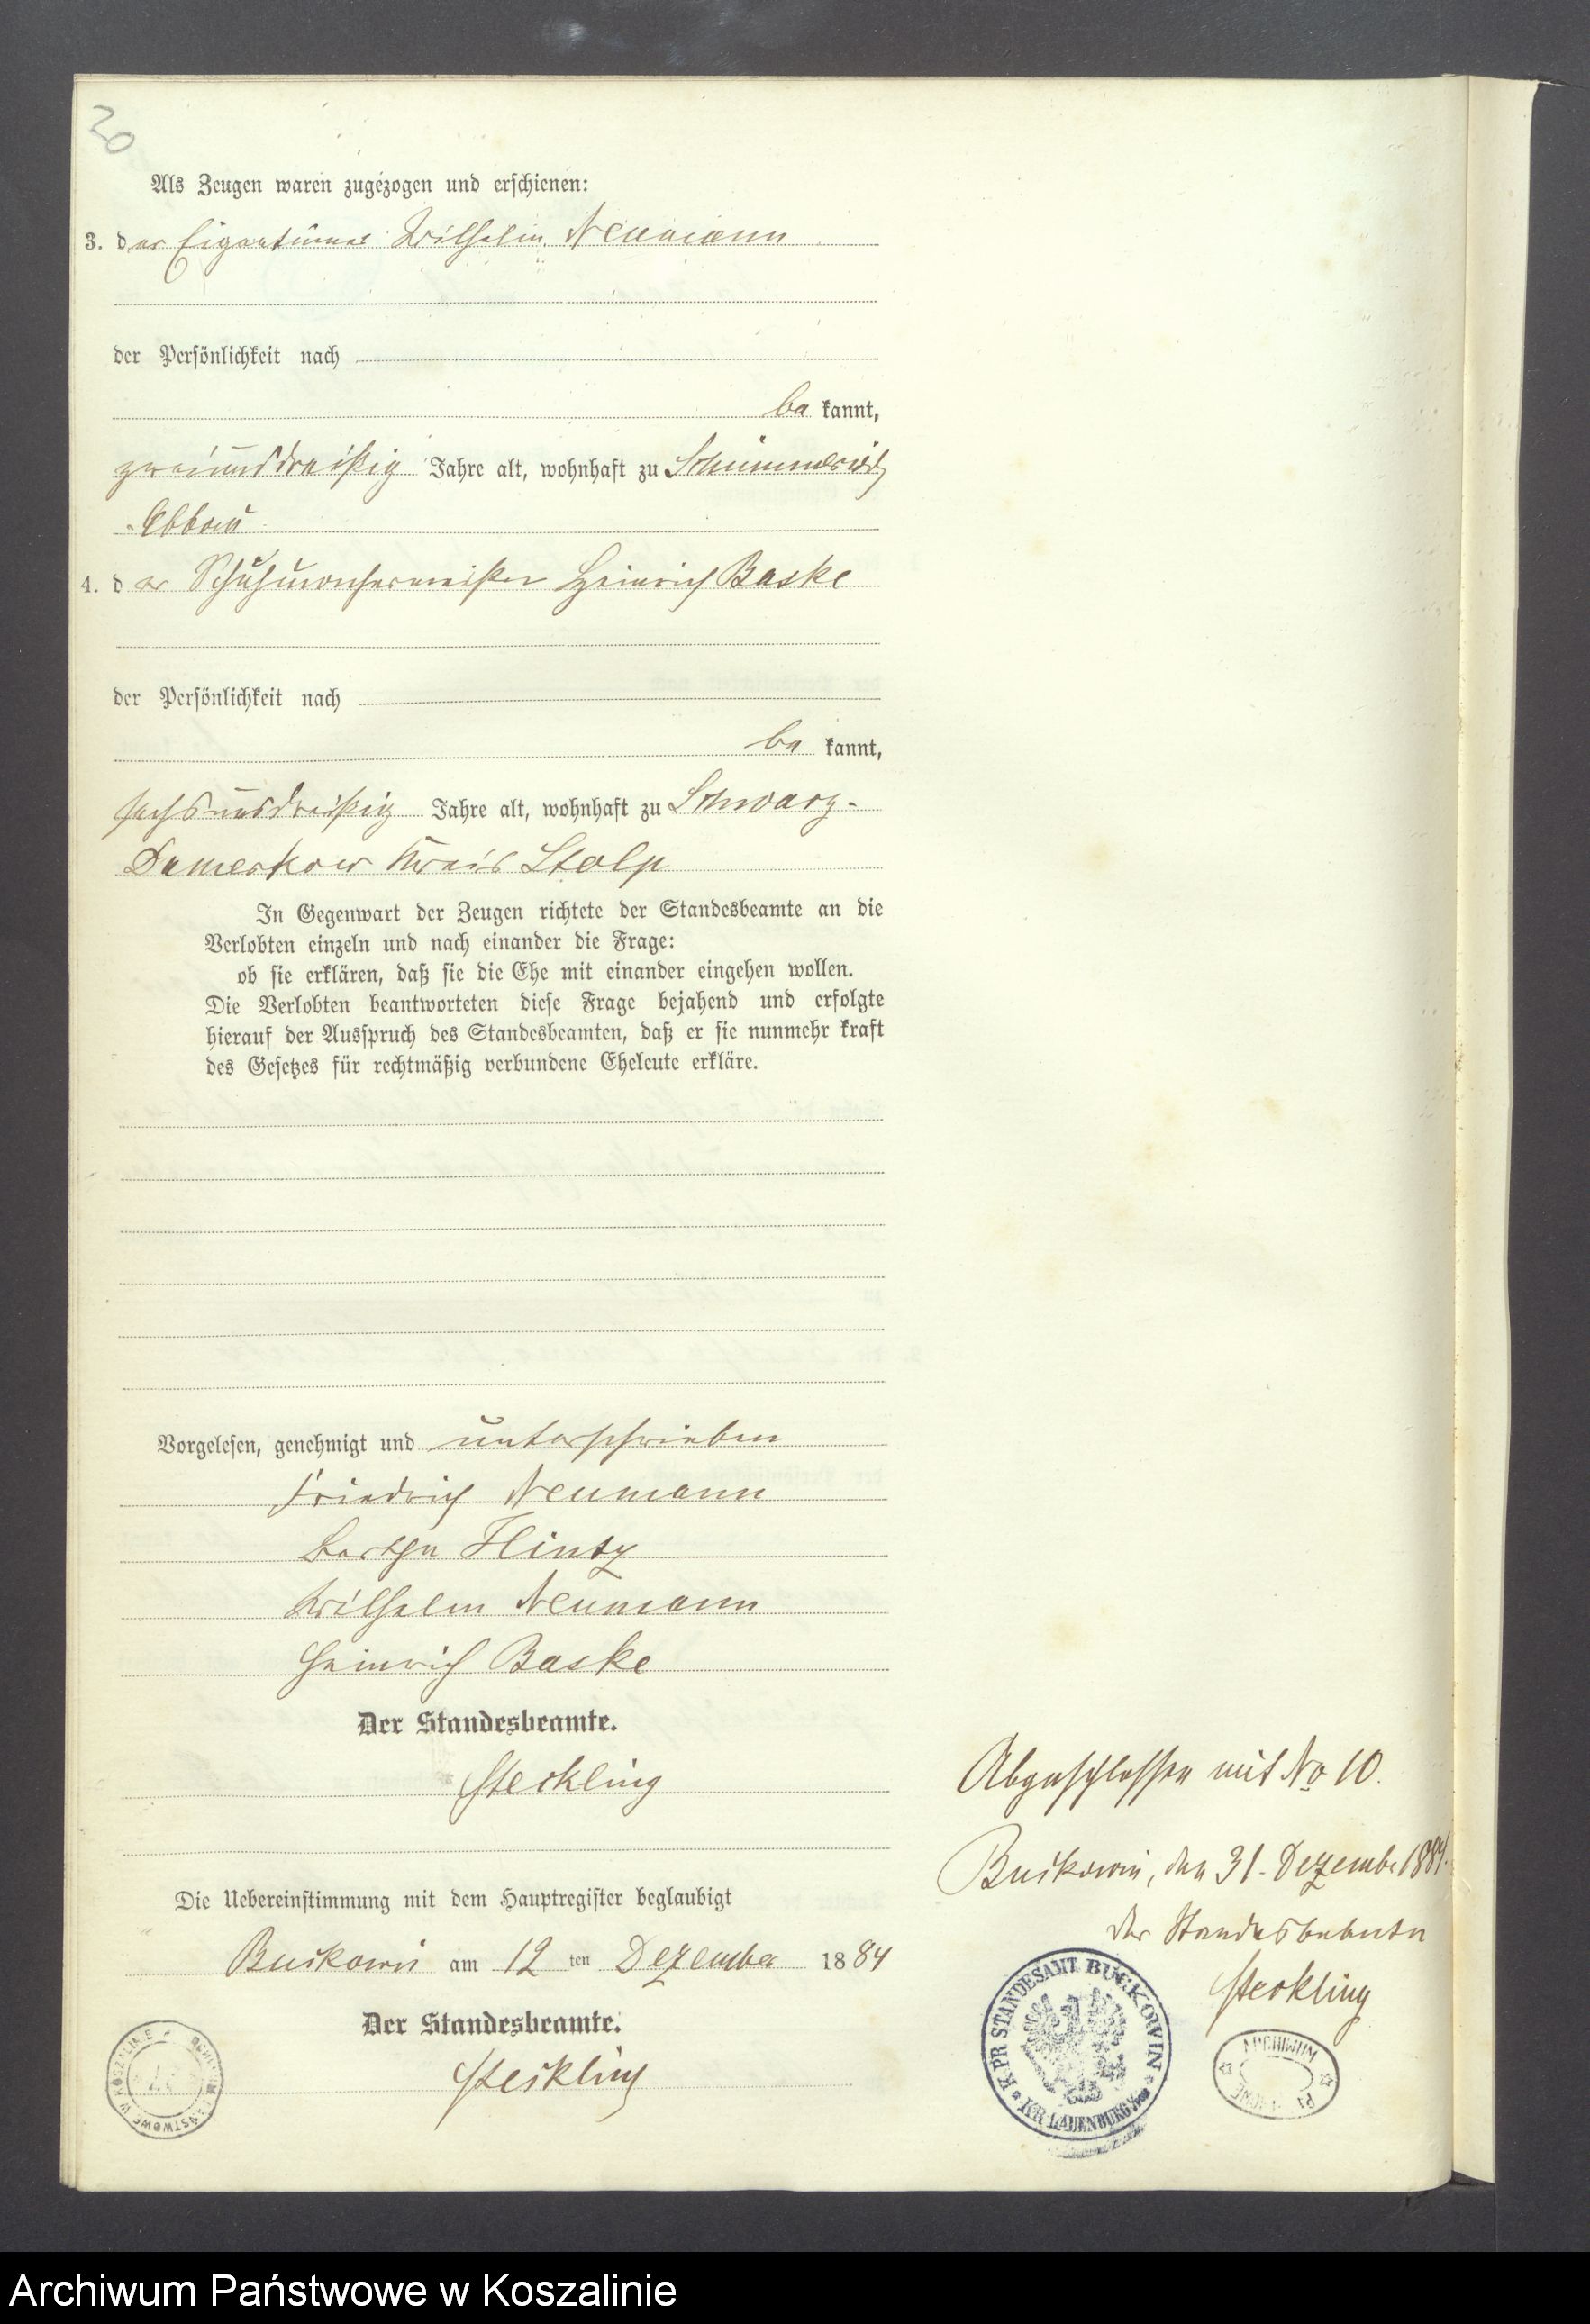 20
Als Zeugen waren zugezogen und erschienen:
3. der Eigentümer Wilhelm Neumann
der Persönlichkeit nach
bekannt,
zweiunddreißig Jahre alt, wohnhaft zu Schimmerwitz
Abbau
4. der Schuhmachermeister Heinrich Baske
der Persönlichkeit nach
bekannt,
sechsunddreißig Jahre alt, wohnhaft zu Schwarz-
Damerkow Kreis Stolp
In Gegenwart der Zeugen richtete der Standesbeamte an die
Verlobten einzeln und nach einander die Frage:
ob sie erklären, daß sie die Ehe mit einander eingehen wollen.
Die Verlobten beantworteten diese Frage bejahend und erfolgte
hierauf der Ausspruch des Standesbeamten, daß er sie nunmehr kraft
des Gesetzes für rechtmäßig verbundene Eheleute erkläre.
Vorgelesen, genehmigt und unterschrieben
Friedrich Neumann
Bertha Flintz
Wilhelm Neumann
Heinrich Baske
Der Standesbeamte.
Steckling
Die Uebereinstimmung mit dem Hauptregister beglaubigt
Buckowin am 12 ten Dezember 1884
Der Standesbeamte.
Steckling
Abgeschlossen mit No 10.
Buckowin, den 31. Dezember 1884.
Der Standesbeamte
Steckling
K. PR STANDESAMT BUCKOWIN
KR LAUENBURG
ARCHIWUM
Archiwum Państwowe w Koszalinie